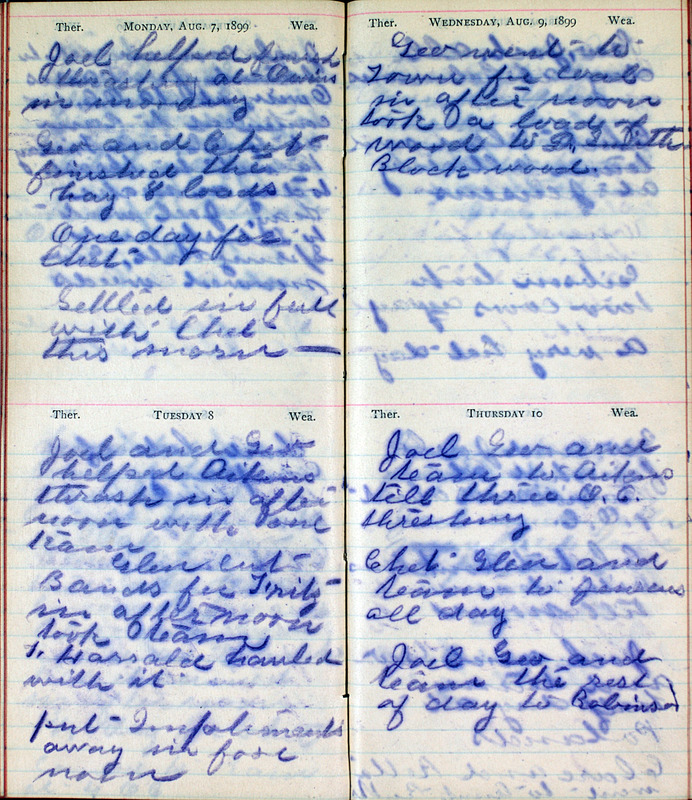 Ther. MONDAY, AUG. 7, 1899 Wea.
Joel helped finish
thrashing at
in morning
Geo and Chet
finished the
hay 8 loads
One day for
Chet
Settled in full
with Chet
this morn —
Ther. TUESDAY 8 Wea.
Joel and Geo
helped Aikins
thrash in after
noon with one
team
Glen cut
Bands for Fritz
in afternoon
took team
Harrald hauled
with it
put Impliments
away in fore
noon
Ther. WEDNESDAY, AUG. 9, 1899 Wea.
Geo went to
Town for coal
in after noon
took a load of
wood to
Block wood.
Ther. THURSDAY 10 Wea.
Joel Geo and
team to Aitins
till three O. C.
threshing
Chet Glen and
team to Jensens
all day
Joel Geo and
team the rest
of day to Robinson